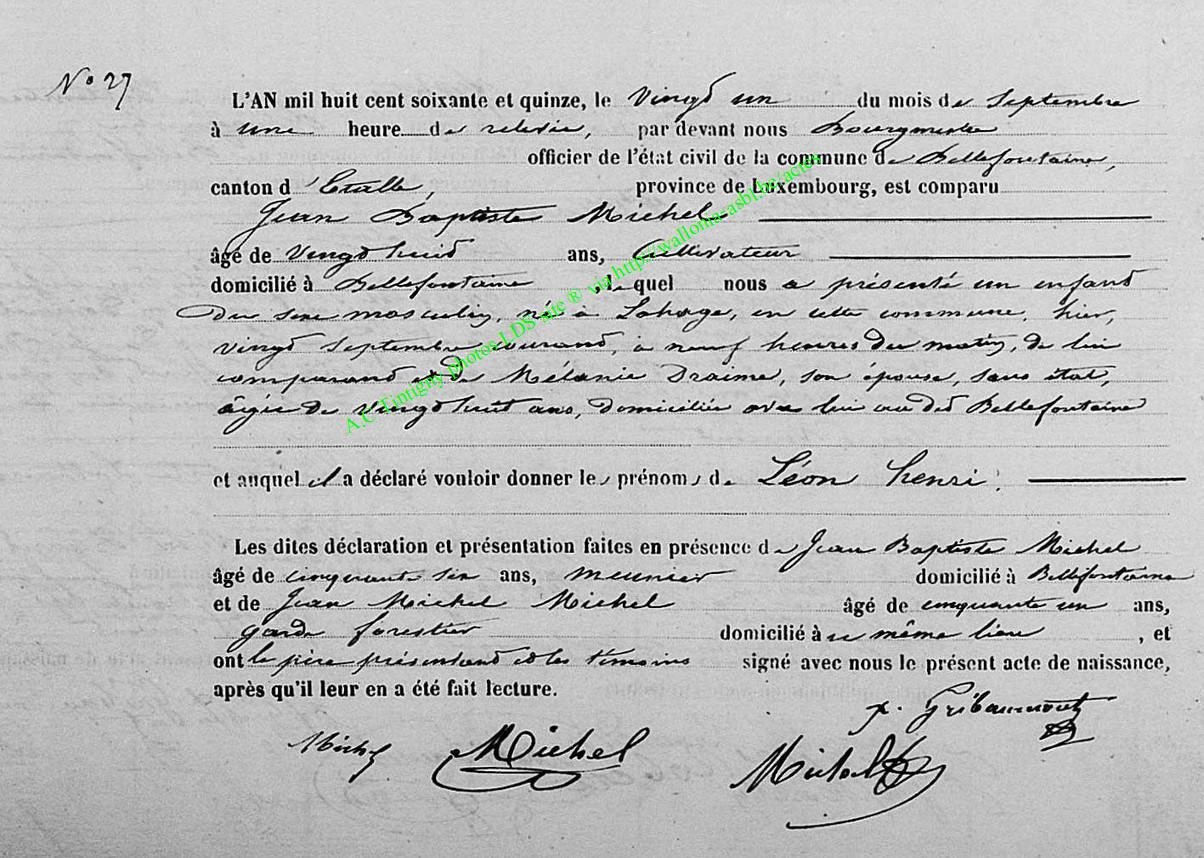 N° 27
L'AN mil huit cent soixante et quinze, le Vingt un du mois de Septembre
à une heure de relevée, par devant nous Bourgmestre
officier de l'état civil de la commune de Bellefontaine,
canton d'Etalle, province de Luxembourg, est comparu
Jean Baptiste Michel
âgé de Vingt huit ans, Cultivateur
domicilié à Bellefontaine, lequel nous a présenté un enfant
du sexe masculin, né à Lahage, en cette commune, hier,
vingt Septembre courant, à neuf heures du matin, de lui
comparant et de Mélanie Draime, son épouse, sans état,
âgée de vingt huit ans, domiciliée avec lui au dit Bellefontaine
et auquel il a déclaré vouloir donner les prénoms de Léon henri.
Les dites déclaration et présentation faites en présence de Jean Baptiste Michel
âgé de cinquante six ans, meunier domicilié à Bellefontaine
et de Jean Michel Michel âgé de cinquante un ans,
garde forestier domicilié à ce même lieu, et
ont le père présentant et les témoins signé avec nous le présent acte de naissance,
après qu'il leur en a été fait lecture.
Michel Michel Michel
A.C. Tintigny photos LDS site ® via http://wallonia-asbl.be/actes